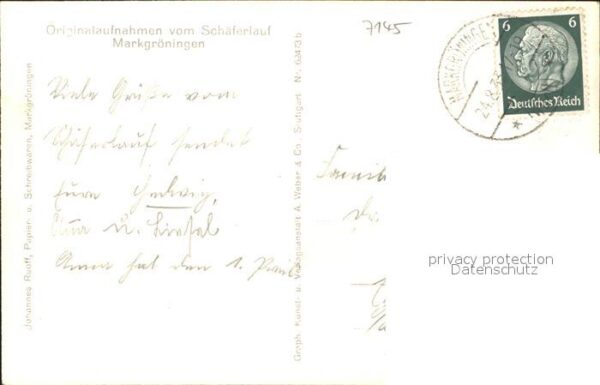 Originalaufnahmen vom Schäferlauf
Markgröningen
7145
Viele Grüße vom
Schäferlauf sendet
Eure Hedwig,
u.
Anna hat den 1. Preis
Johannes Ruoff, Papier- u. Schreibwaren, Markgröningen
Graph. Kunst- u. Verlagsanstalt A. Weber & Co., Stuttgart Nr. 62473b
Famil
6 6
Deutsches Reich
MARKGRÖNINGEN
24.8.
privacy protection
Datenschutz